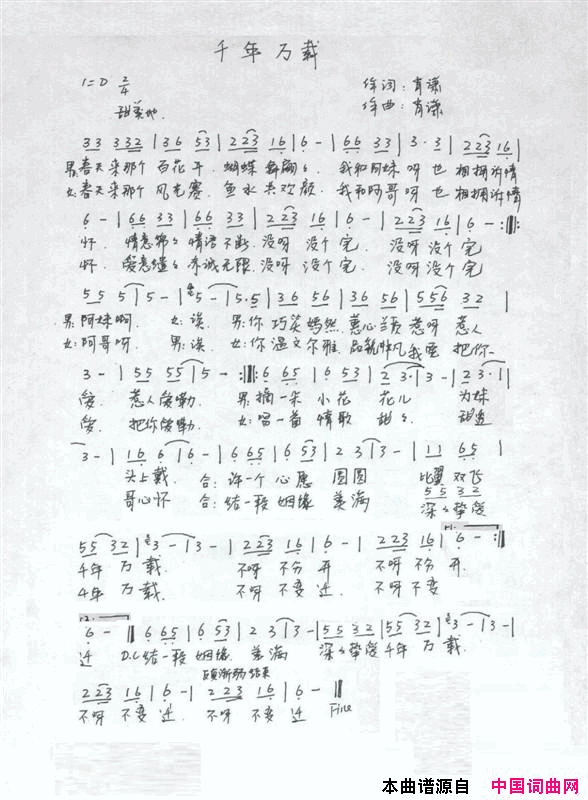 千年万载
1=D 2/4
作词：肖谦
甜美地
作曲：肖谦
33 332 | 36 53 | 223 16 | 6 - | 66 33 | 3·3 | 223 16 |
男:春天来那个 百花开. 蝴蝶 翩翩 我和阿妹呀 也 相拥诉情
女:春天来那个 风光赛. 鱼水共欢颜. 我和阿哥呀 也 相拥诉情
6 - | 66 33 | 66 33 | 223 16 | 6 - | 223 16 | 6 - :||
怀. 情意绵々 情语不断. 没呀 没个完. 没呀 没个完
怀. 爱意缠々 赤诚无限. 没呀 没个完. 没呀 没个完
55 5 | 5 - | 5 - | 5·5 | 36 56 | 36 56 | 556 32 |
男:阿妹啊. 女:诶. 男:你 巧笑嫣然 蕙心兰质 惹呀 惹人
女:阿哥呀. 男:诶. 女:你 温文尔雅. 品貌非凡 我要 把你
3 - | 55 55 | 5 - :||: 6 65 | 6 53 | 2 3 | 3 - | 23·1 |
爱. 惹人爱嘞. 男:摘一朵 小花 花儿 为妹
爱. 把你爱嘞. 女:唱一首 情歌 甜々 甜进
3 - | 16 6 | 6 - | 665 | 653 | 23 | 3 - | 11 65 |
头上戴. 合:许一个 心愿 圆圆 比翼双飞
55 32
哥心怀 合:结一段 姻缘 美满 深々挚爱
55 32 | 3 - | 3 - | 223 16 | 6 - | 223 16 | 6 - :|
千年 万 载. 不呀 不分 开 不呀 不分 开.
千年 万 载. 不呀 不变 迁. 不呀 不变
6 - || 6 65 | 6 53 | 2 3 | 3 - | 55 32 | 55 32 | 3 - | 3 - |
迁 D.C 结一段 姻缘 美满 深々挚爱 千年 万 载.
223 16 | 6 - | 223 16 | 6 - ||
不呀 不变 迁. 不呀 不变 迁 Fine
本曲谱源自 中国词曲网